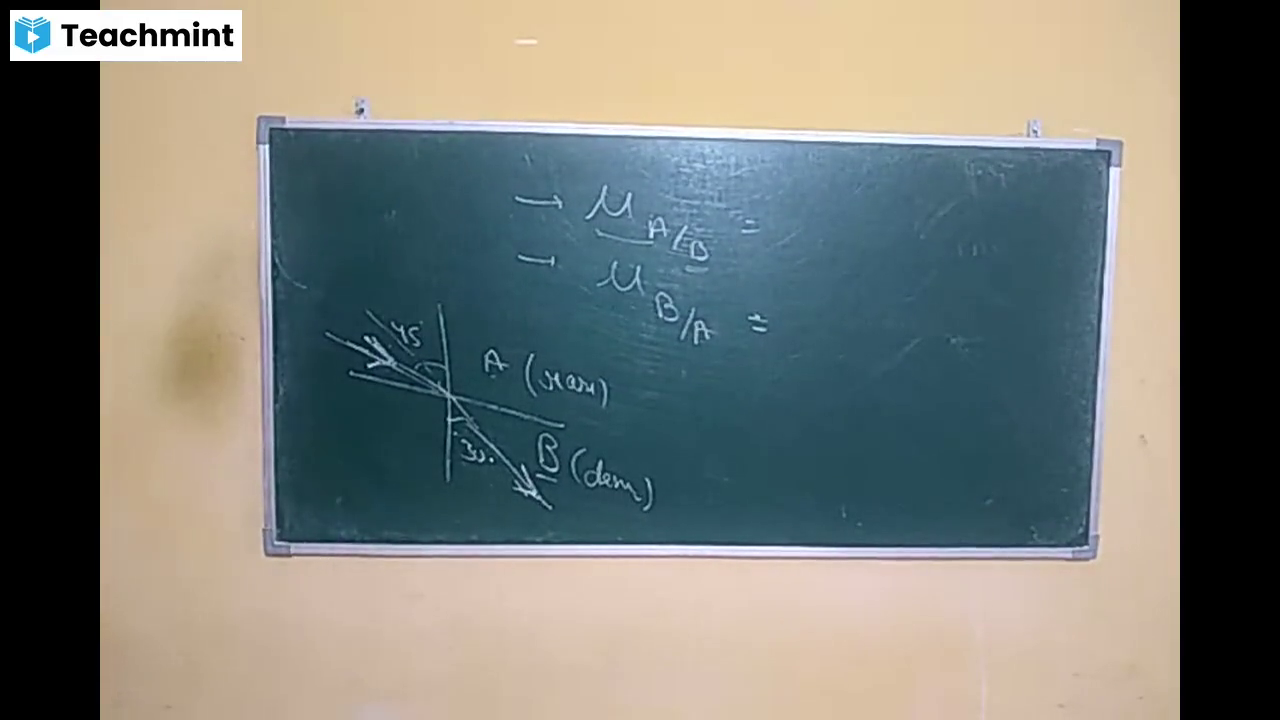 Teachmint
→ μ A/B =
→ μ B/A =
45
A (rarer)
30°
B (denser)